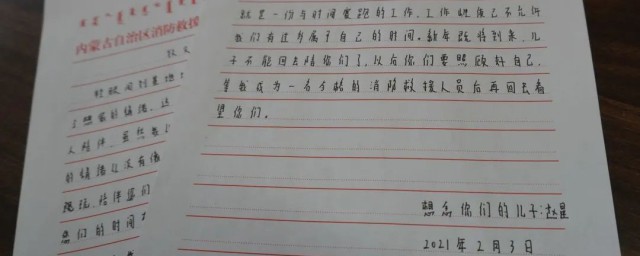 内蒙古自治区消防救援
致父
转眼间到基地
了想家的情绪。这
人陪伴。虽然
的情绪让没有
现现.陪伴您们
您们的时间
就是一份与时间赛跑的工作。工作性质已不允许
我们有过多属于自己的时间。新年既将到来、儿
子不能回去陪你们了,以后你们要照顾好自己,
望我成为一名合格的消防救援人员后再回去看
望你们。
想念你们的儿子:赵星
2021年2月3日